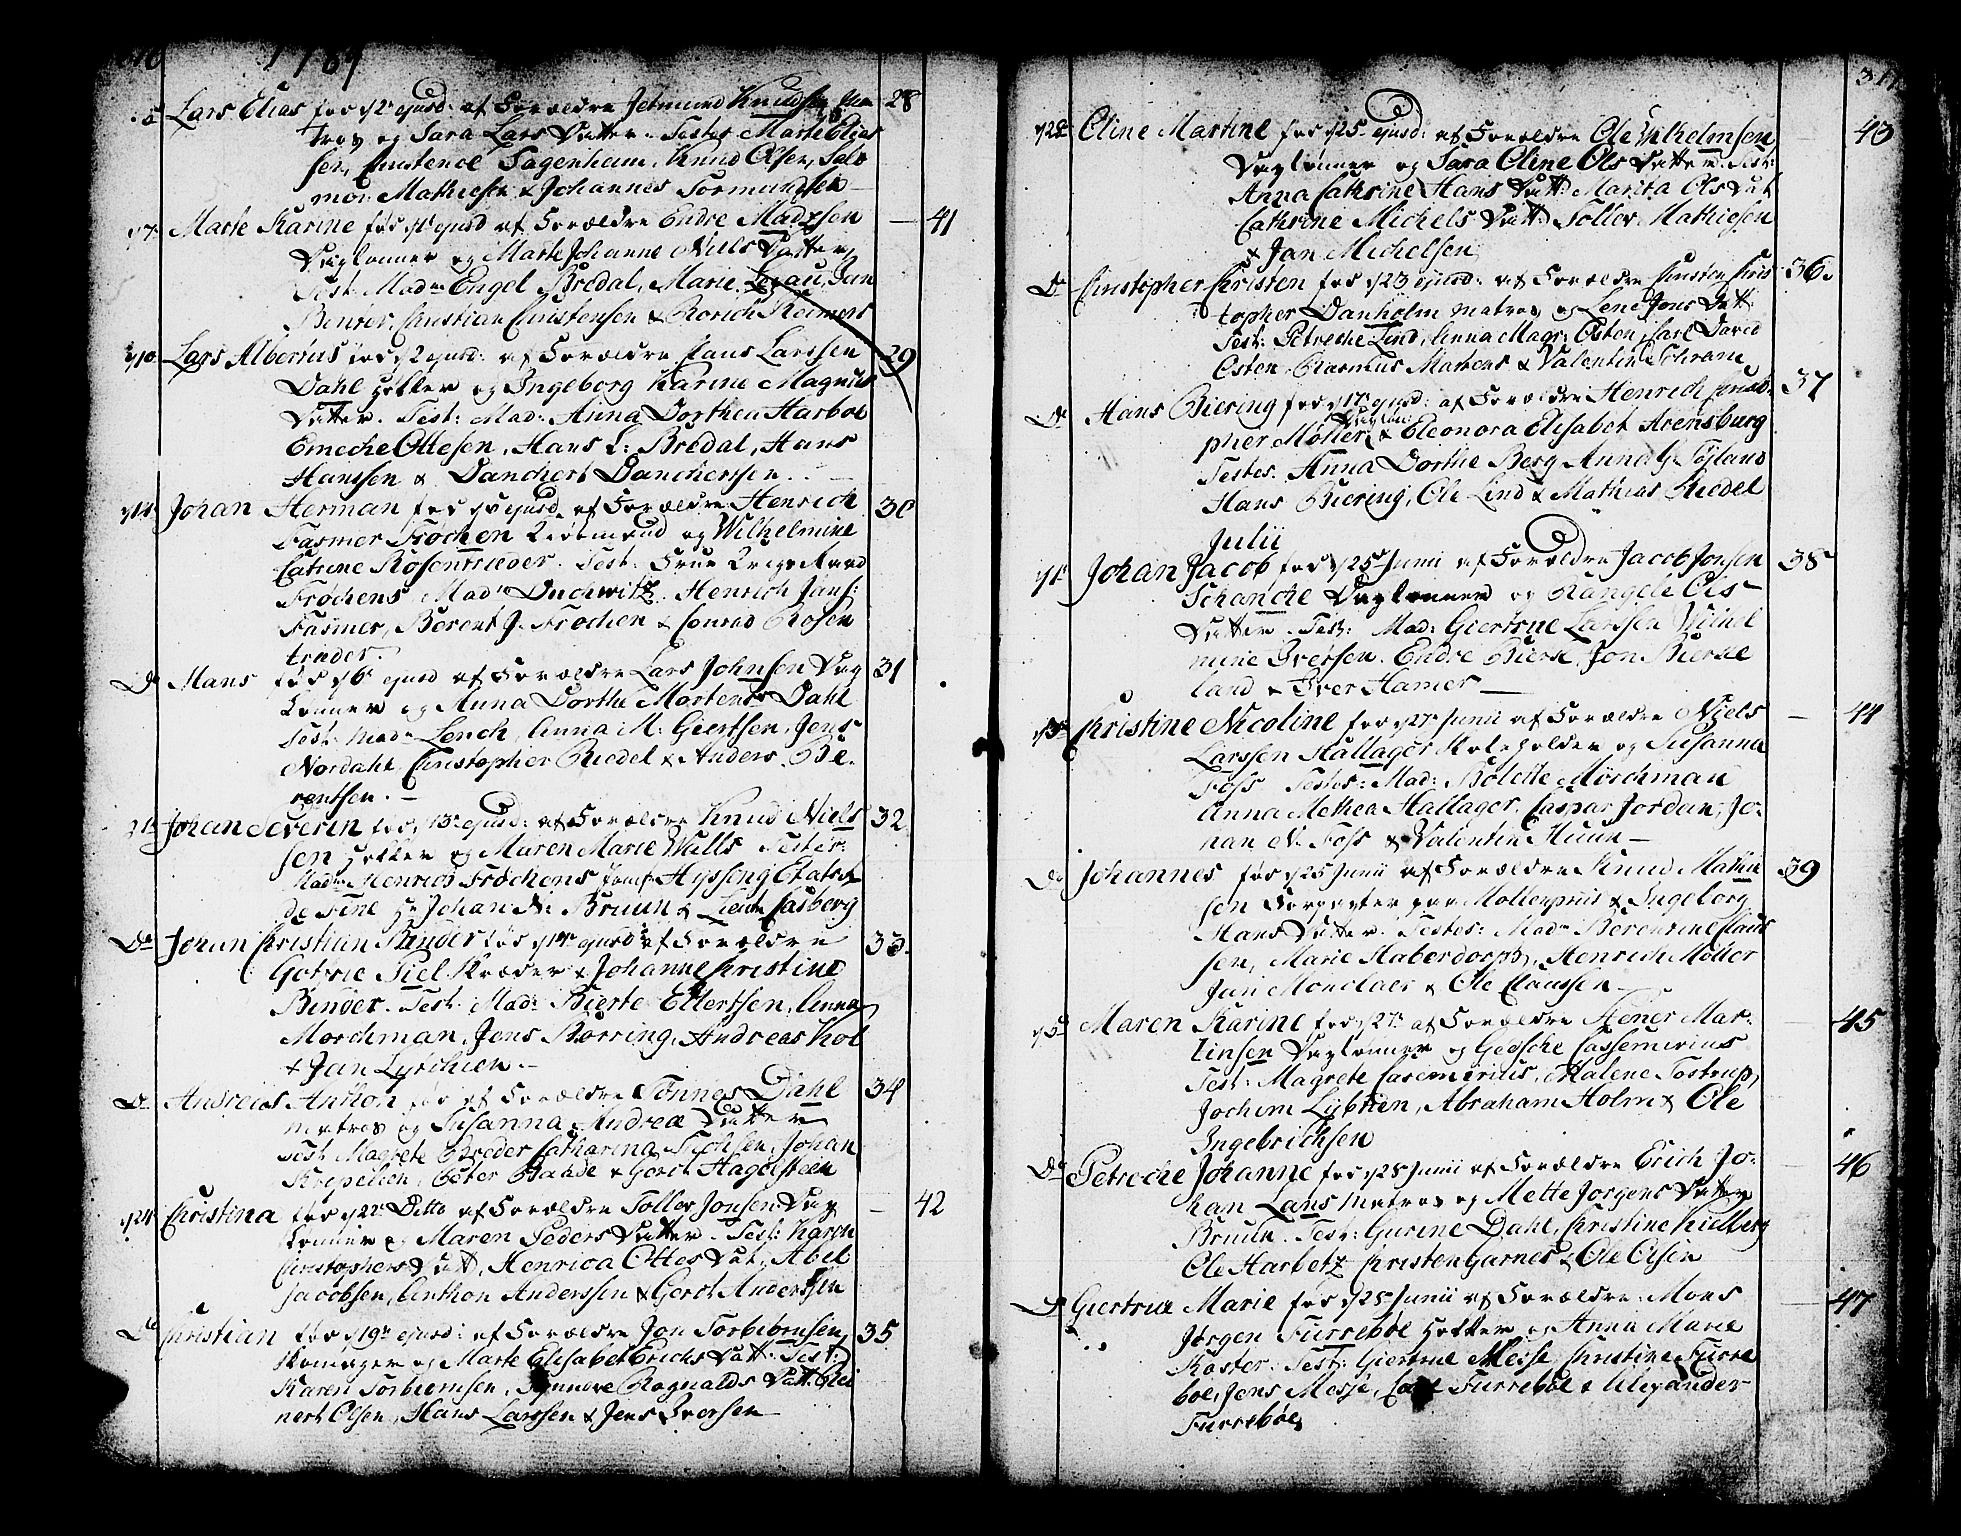 1789
Lars Elias fød d 2 ejusd: af Forældre Jetmund Knudsen Ma 28
tros og Sara Lars Datter. Testes Marte Elias
sen, Constence Sagenheim, Knud Olsen, Salo
mon Mathiesen & Johannes Tormundsen
d 7 Marte Karine fød d 1 ejusd af Forældre Endre Madssen — 41
Dagloner og Marte Johanne Niels Datter
Test: Mad: Engel Bredal, Marie Jan
Benter, Christian Christensen & Rorich Reimers
d 10 Lars Albertus fød d 2 ejusd: af Forældre Claus Larssen 29
Dahl Hokker og Ingeborg Karine Magnus
Datter. Test: Mad: Anna Dorthea Harboe
Emeche Ottesen, Hans L: Bredal, Hans
Hanssen & Danchert Danchertsen
d 14 Johan Herman fød ejusd af Forældre Henrich 30
Fasmer Frochen Kiøbmand og Wilhelmine
Catrine Rosentrieder. Test: Frue Krigs Raad
Frochens, Mad: Duchwitz, Henrich Jans:
Fasmer, Berent J. Frochen & Conrad Rosen
trieder.
Do Mans fød d 6 ejusd af Forældre Lars Johnsen Dag 31
lonner og Anna Dorthe Mortens Dahl
Test: Mad: Lench, Anna M: Giertsen, Jens
Nordahl, Christopher Riedel & Anders Be
rentsen.
21 Johan Severin fød d 13 ejusd: af Forældre Knud Niels 32
sen Hokker og Maren Marie Wills Testes:
Mad: Henrich Frochens Jomf Hysseng Etats
de Fine Hr Johan N: Bruun & Lieut: Casberg
Do Johan Christian Binder fød d 14 ejusd af Forældre 33
Gotfrie Tiel Skræder & Johanne Christine
Binder. Test: Mad: Bierte Ellertsen, Anna
Morchman, Jens Rorring, Andreas Kol
& Jan Lyrchien.
Do Andreas Anthon fød af Forældre Tønnes Dahl 34
matros og Susanna Andrea Datter
Test Magrete Breder Catharina Tiochsen, Johan
Krepelien, Peter Baade & Gerct Hagelsteen
d 24 Christina fød d 22 Ditto af Forældre Toller Jonsen Dag — 42
lonner og Maren Peders Datter. Test: Karen
Christophers Datt, Henrica Ottes Dat, Abel
Jacobsen, Anthon Anderssen & Gerct Anderssen
Do Christian fød d 19 ejusd: af Forældre Jon Torbiørnsen 35
Skomager og Marte Elisabet Erichs Datt: Test:
Karen Torbiørnsen, Synneve Ragnalds Datt: Rei
nert Olsen, Hans Larssen & Jens Iversen
d 28 Oline Martine fød d 25 ejusd: af Forældre Ole Vilhelmsen 43
Daglonner og Sara Oline Ols Datter. Test:
Anna Cathrine Hans Datt: Marita Ols Dat
Cathrine Michels Datt: Toller Mathiesen
& Jan Michelsen
Do Christopher Christen fød d 23 ejusd: af Forældre Christen Chris 36.
topher Danholm matros og Lene Jons Datt:
Test: Petreche Lind, Anna Magr: Osten, Carl David
Osten, Rasmus Martens & Valentin Schram
Do Hans Biering fød d 17 ejusd: af Forældre Henrich Christo 37
pher Møller & Eleonora Elisabet Arensburg
Testes: Anna Dorthe Berg Anna G: Tøjland
Hans Biering, Ole Lind & Mathias Riedel
Julii
d 1 Johan Jacob fød d 25 Junii af Forældre Jacob Jonsen 38
Schanche Daglonner og Rangele Ols
Datter. Test: Mad: Giertrue Larssen
mine Iversen. Endre Bierk, Jon Bierke
land & Iver Hamer —
d 5 Christine Nicoline fød d 27 Junii af Forældre Niels — 44
Larssen Hallager Skoleholder og Susanna
Foss Testes: Mad: Bolette Mørchman
Anna Methea Hallager, Caspar Jordan, Jo:
han N: Foss & Valentin Huun —
Do Johannes fød d 25 Junii af Forældre Knud Mathie 39
sen Forpagter paa Møllenpriis & Ingeborg
Hans Datter. Testes: Mad: Berentine Claus
sen, Marie Haberdorph, Henrich Møller
Jan Monclaer & Ole Claussen
d 5 Maren Karine fød d 27 af Forældre Heiner Mar: 45
tinsen Daglonner og Geesche Cassemirius
Test: Magrete Casemirius, Malene Tostrup,
Jochim Lybtien, Abraham Holm & Ole
Ingebrichsen
Do Petreche Johanne fød d 28 Junii af Forældre Erich Jo: 46
han Lans Matros og Mette Jorgens Datter
Bruun. Test: Gurine Dahl, Christine Kielberg
Ole Harbetz, Christen Garnes & Ole Olsen
Do Giertrue Marie fød d 25 Junii af Forældre: Mons — 47
Jørgen Furreboe Hokker og Anna Marie
Koster. Test: Giertrue Messe, Christine Furre
boe, Jens Mesje, Furreboe & Alexander
Furreboe